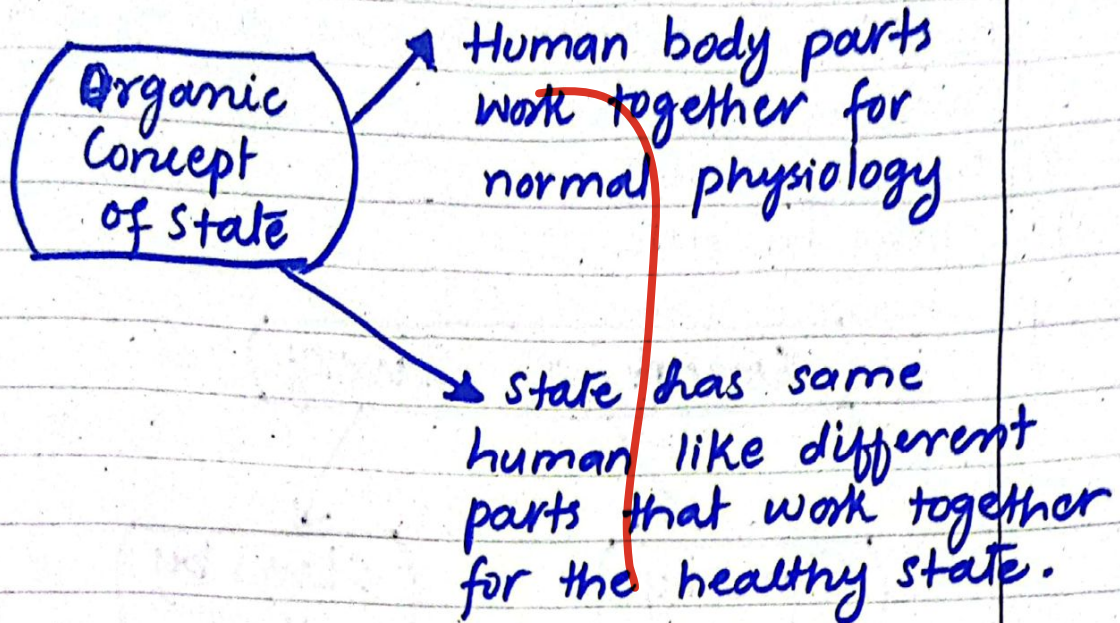 Organic
Concept
of State
Human body parts
work together for
normal physiology
State has same
human like different
parts that work together
for the healthy state.